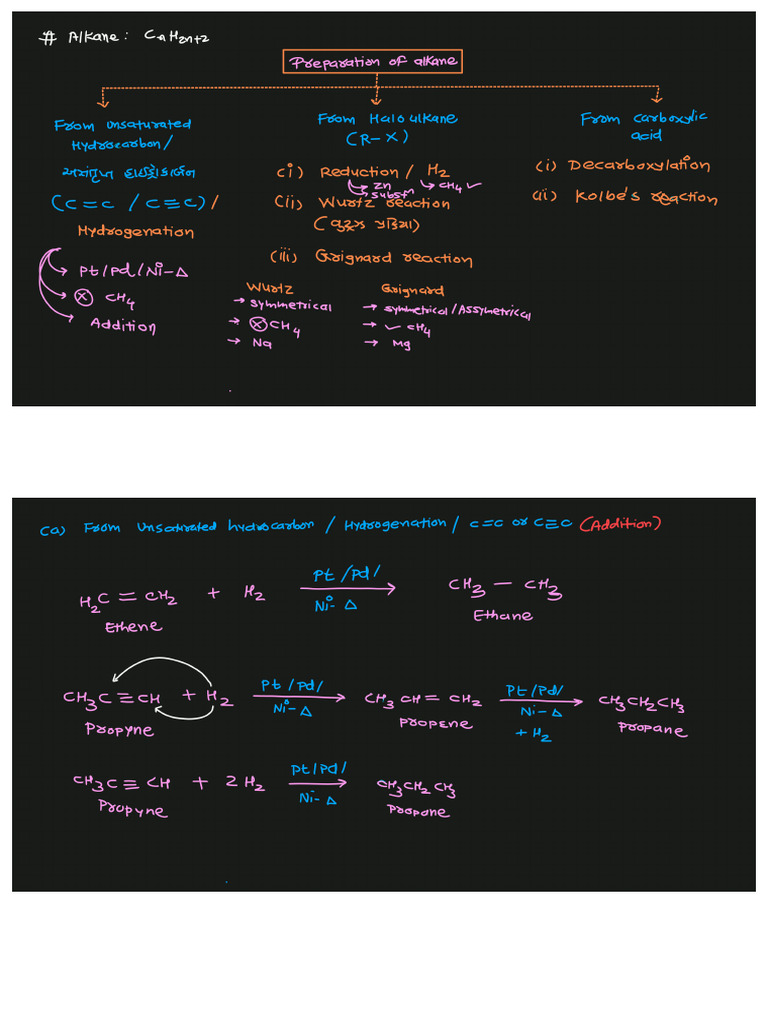 # Alkane: CnH2n+2
Preparation of alkane
From unsaturated
Hydrocarbon/
અસંતૃપ્ત હાઈડ્રોકાર્બન
(C=C / C≡C) /
Hydrogenation
→ Pt/Pd/Ni-Δ
→ ⓧ CH4
→ Addition
From Haloalkane
(R-X)
(i) Reduction / H2
→ Zn → CH4 ✓
→ substn
(ii) Wurtz reaction
(વુર્ટ્ઝ પ્રક્રિયા)
(iii) Grignard reaction
Wurtz
→ symmetrical
→ ⓧ CH4
→ Na
Grignard
→ symmetrical/Assymetrical
→ ✓ CH4
→ Mg
From carboxylic
acid
(i) Decarboxylation
(ii) Kolbe's reaction
(a) From Unsaturated hydrocarbon / Hydrogenation / C=C or C≡C (Addition)
H2C = CH2 + H2 Pt/Pd/ Ni-Δ → CH3 – CH3
Ethene Ethane
CH3C≡CH + H2 Pt/Pd/ Ni-Δ → CH3CH=CH2 Pt/Pd/ Ni-Δ + H2 → CH3CH2CH3
Propyne Propene Propane
CH3C≡CH + 2H2 Pt/Pd/ Ni-Δ → CH3CH2CH3
Propyne Propane